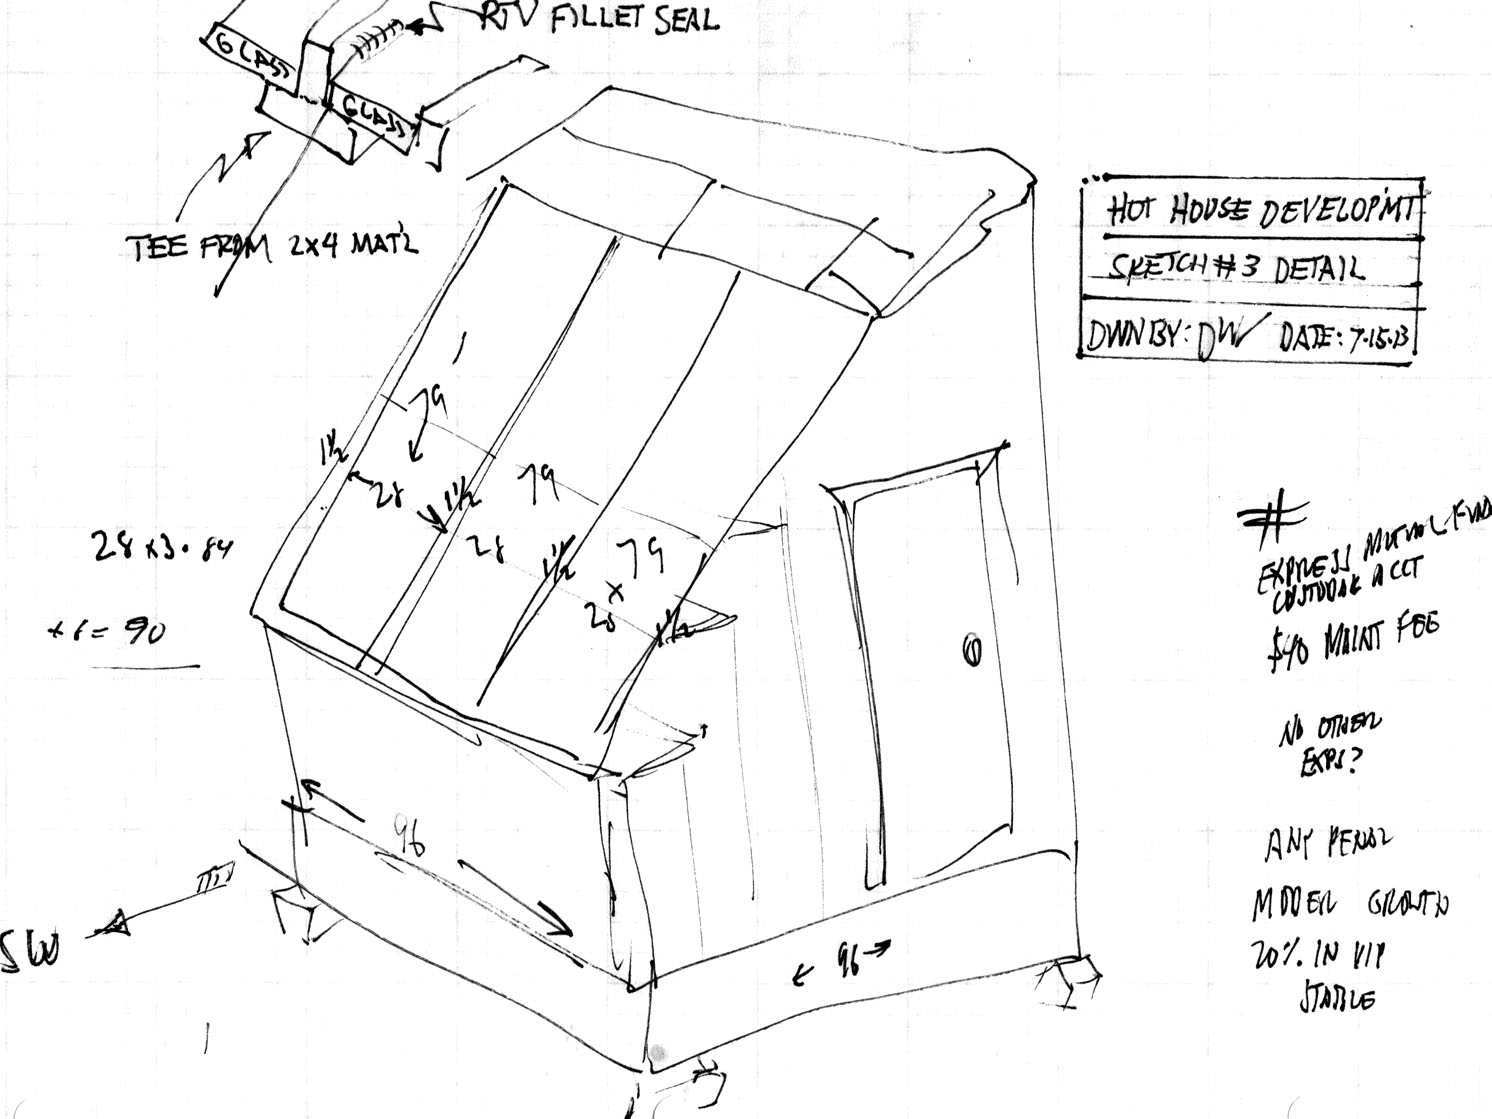 RTV FILLET SEAL
GLASS
GLASS
TEE FROM 2X4 MAT'L
HOT HOUSE DEVELOPMT
SKETCH #3 DETAIL
DWN BY: DW DATE: 7-15-13
1½
79
28
1½
79
28
1½
79
X
28
1½
28 x 3 = 84
+ 6 = 90
96
96
SW
#
EXPRESS MUTUAL FUND
CUSTODIAL ACCT
$40 MAINT FEE
NO OTHER
EXPS?
ANY PENAL
MODER GROWTH
20% IN VIP
STABLE